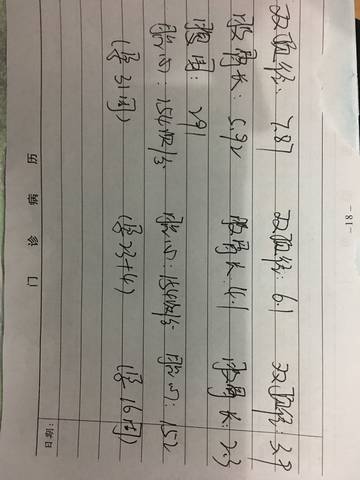 -18-
双顶径: 7.87 双顶径: 6.1 双顶径: 3.9
股骨长: 5.92 股骨长: 4.1 股骨长: 2.3
腹围: 291
胎心: 154次/分 胎心: 154次/分 胎心: 152
(孕31周) (孕23+4) (孕16周)
门诊病历
日期: